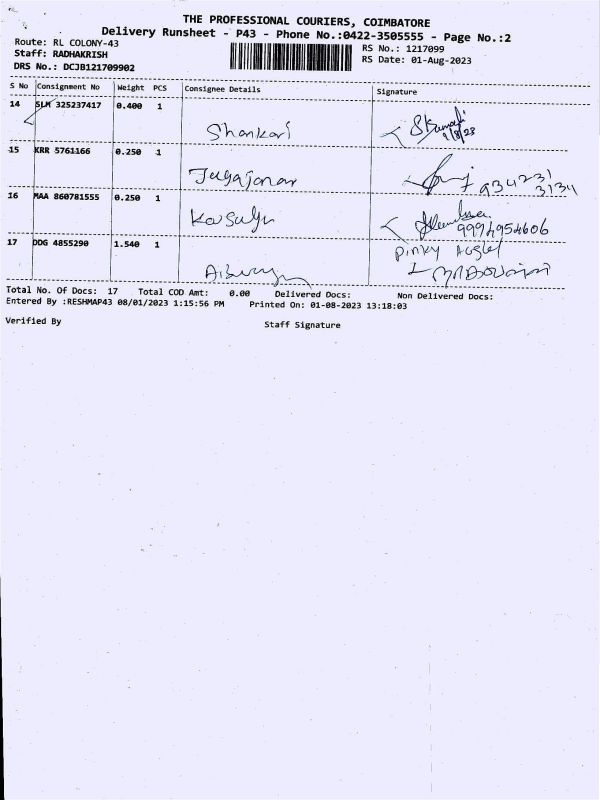 THE PROFESSIONAL COURIERS, COIMBATORE
Delivery Runsheet - P43 - Phone No.:0422-3505555 - Page No.:2
Route: RL COLONY-43
RS No.: 1217099
Staff: RADHAKRISH
RS Date: 01-Aug-2023
DRS No.: DCJB121709902
S No Consignment No Weight PCS Consignee Details Signature
14 SLM 325237417 0.400 1
Shankari
1/8/23
15 KRR 5761166 0.250 1
934231
3134
16 MAA 860781555 0.250 1
9994954606
17 DDG 4855290 1.540 1
Pinky
Total No. Of Docs: 17 Total COD Amt: 0.00 Delivered Docs: Non Delivered Docs:
Entered By :RESHMAP43 08/01/2023 1:15:56 PM Printed On: 01-08-2023 13:18:03
Verified By
Staff Signature